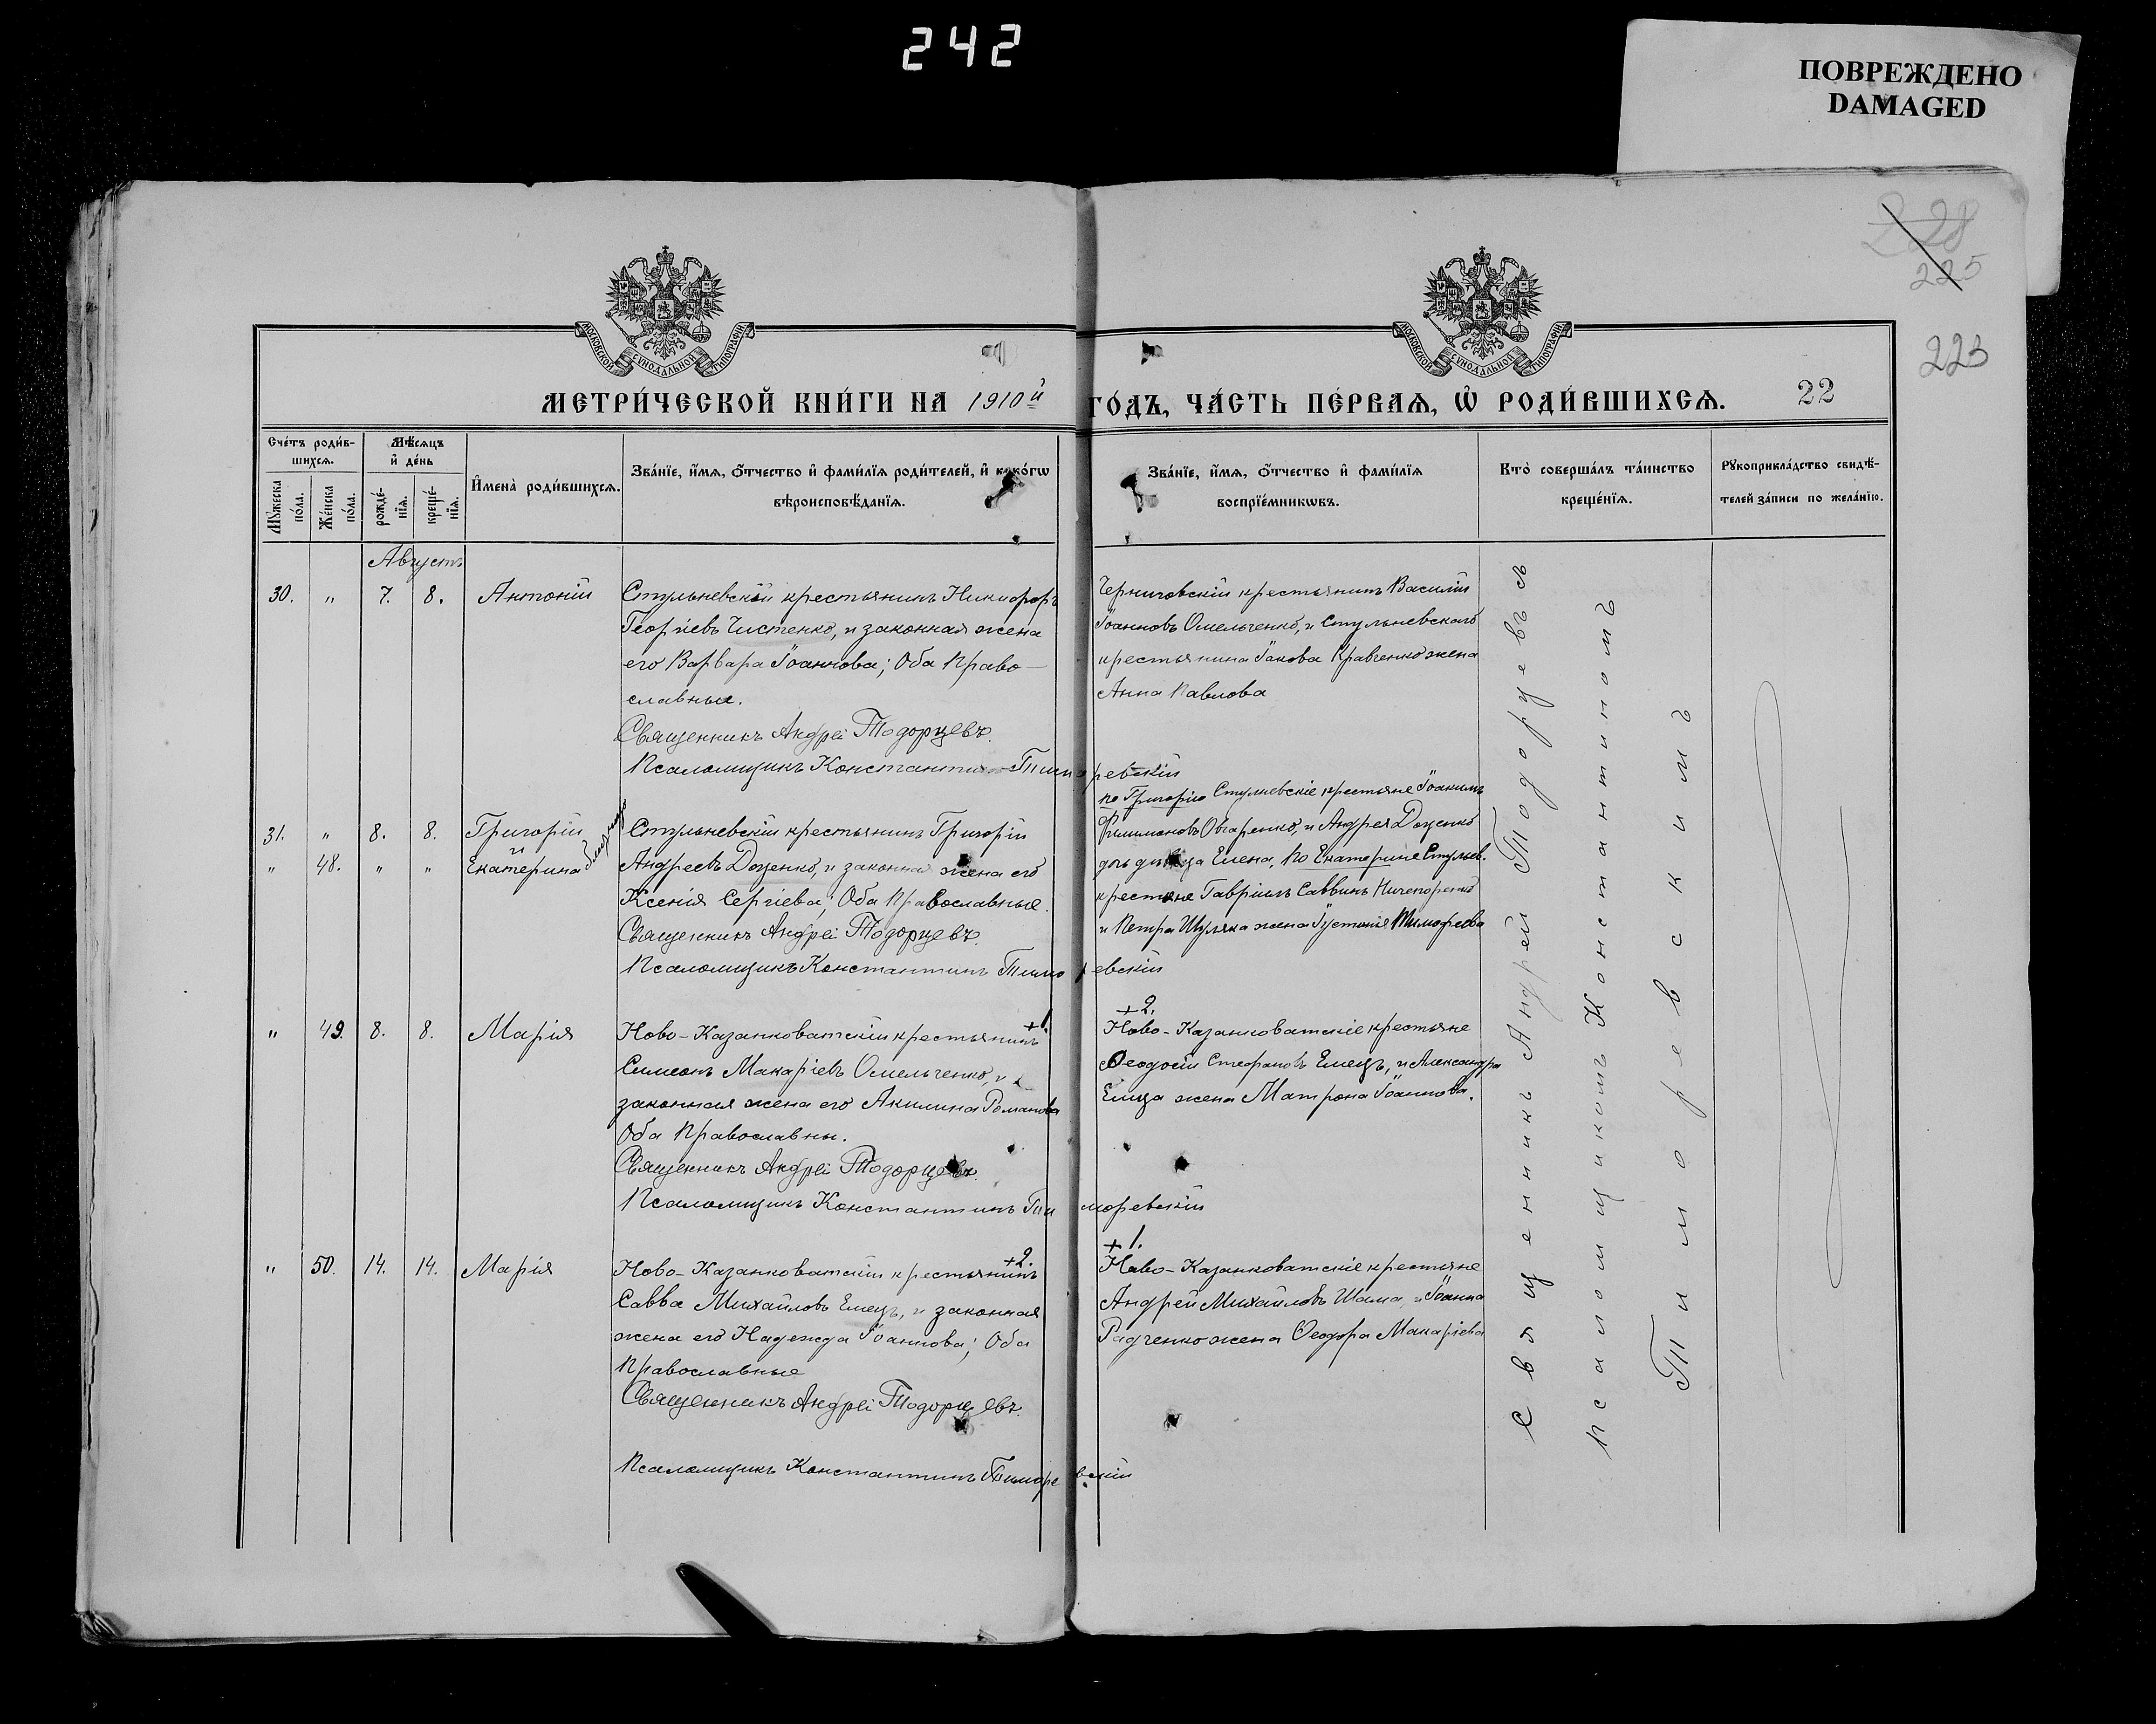 242
ПОВРЕЖДЕНО
DAMAGED
228
225
223
МОСКОВСКОЙ СУНОДАЛЬНОЙ ТИПОГРАФІИ
МОСКОВСКОЙ СУНОДАЛЬНОЙ ТИПОГРАФІИ
МЕТРИ́ЧЕСКОЙ КНИ́ГИ НА 1910й ГО́ДЪ, ЧА́СТЬ ПЕ́РВАѦ, Ѡ҆ РОДИ́ВШИХСѦ. 22
Сче́тъ роди́в-
шихсѧ.
Мꙋ́жеска
по́ла.
Же́нска
по́ла.
Мѣ́сѧцъ
и҆ де́нь
рожде́-
нїѧ.
креще́-
нїѧ.
И҆мена̀ роди́вшихсѧ.
Зва́нїе, и҆́мѧ, ѻ҆́тчество и҆ фами́лїѧ роди́телей, и҆ како́гѡ
вѣроисповѣ́данїѧ.
Зва́нїе, и҆́мѧ, ѻ҆́тчество и҆ фами́лїѧ
воспрїе́мникѡвъ.
Кто̀ соверша́лъ та́инство
креще́нїѧ.
Рꙋкоприкла́дство свидѣ́-
телей за́писи по жела́нїю.
Августъ
30. " 7. 8. Антоній
Стульневскій крестьянинъ Никифоръ
Георгіевъ Чистенко, и законная жена
его Варвара Іоаннова; Оба Право-
славные.
Священникъ Андрей Тодорцевъ.
Псаломщикъ Константинъ Тиморевскій
Черниговскій крестьянинъ Василій
Іоанновъ Омельченко, и Стульневскаго
крестьянина Іакова Кравченко жена
Анна Павлова
31. " 8. 8. Григорій
и
" 48. " " Екатерина
близнецы
Стульневскій крестьянинъ Григорій
Андреевъ Доценко, и законная жена его
Ксенія Сергіева; Оба Православные.
Священникъ Андрей Тодорцевъ.
Псаломщикъ Константинъ Тиморевскій
по Григорію Стулневскіе крестьяне Іоакимъ
Филимоновъ Овчаренко, и Андрея Доценко
дочь девица Елена, по Екатерине Стульев.
крестьяне Гавріилъ Саввинъ Ничепоренко
и Петра Шуляка жена Іустинія Тимофеева
" 49. 8. 8. Марія
+1.
Ново-Казанковатскій крестьянинъ
Симеонъ Макаріевъ Омельченко, и
законная жена его Акилина Романова
Оба Православны.
Священникъ Андрей Тодорцевъ.
Псаломщикъ Константинъ Тиморевскій
+2.
Ново-Казанковатскіе крестьяне
Ѳеодосій Стефановъ Емецъ, и Александра
Емца жена Матрона Іоаннова.
" 50. 14. 14. Марія
+2.
Ново-Казанковатскій крестьянинъ
Савва Михайловъ Емецъ, и законная
жена его Надежда Іоаннова; Оба
Православные
Священникъ Андрей Тодорцевъ.
Псаломщикъ Константинъ Тиморевскій
+1.
Ново-Казанковатскіе крестьяне
Андрей Михайловъ Шама, и Іоанна
Радченко жена Ѳеодора Макаріева
Священникъ Андрей Тодорцевъ съ
псаломщикомъ Константиномъ
Тиморевскимъ